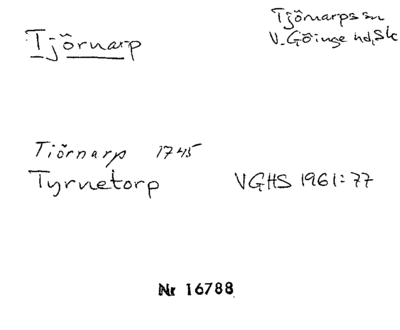 Tjörnarp
Tjörnarps sn
V. Göinge hd, Sk
Tiörnarp 1745
Tyrnetorp VGHS 1961:77
Nr 16788